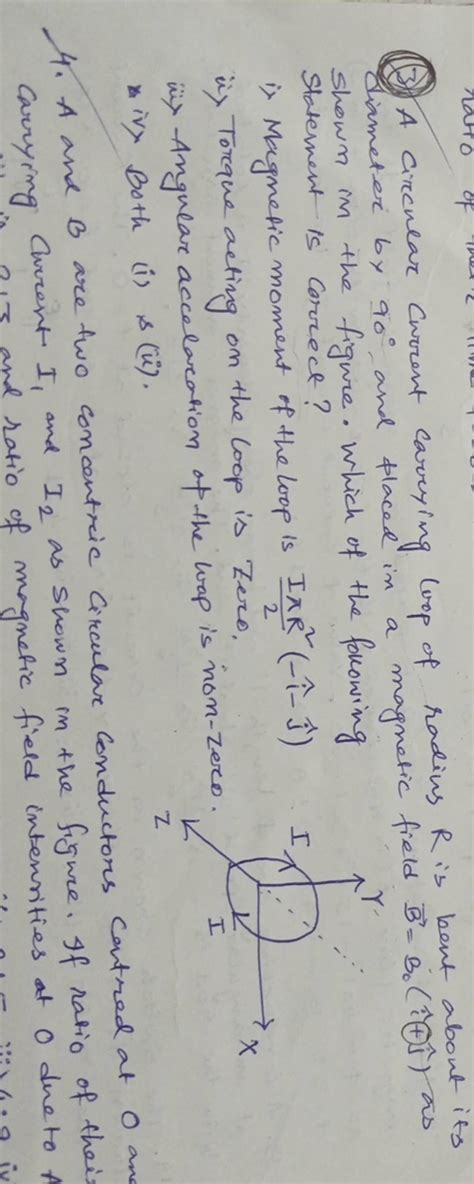 3. A Circular Current carrying loop of radius R is bent about its
diameter by 90° and placed in a magnetic field B⃗ = B₀ (î+ĵ) as
shown in the figure. Which of the following
Statement is Correct?
i) Magnetic moment of the loop is IπR²/2 (-î-ĵ)
ii) Torque acting on the loop is Zero.
iii) Angular accelaration of the loop is non-zero.
iv) Both (i) & (ii).
Y
I
I
X
Z
4. A and B are two concentric Circular Conductors Centred at O and
Carrying Current I₁ and I₂ as shown in the figure. If ratio of their
and ratio of magnetic field intensities at O due to A